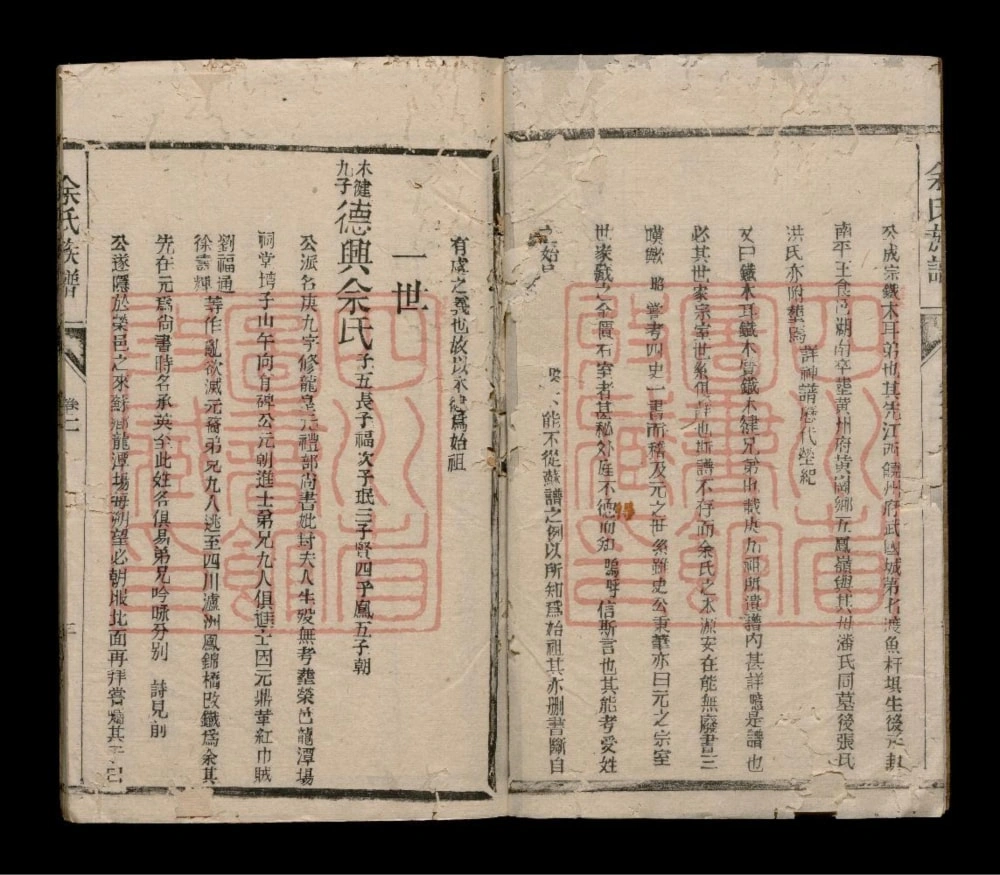 余氏族譜
公成宗鐵木耳弟也其先江西饒州府武國城第老渡魚杆填生後元封
南平王食邑湖南卒塟黃州府黃岡鄉五鳳嶺與其舟潘氏同墓後張氏
洪氏亦附塟焉 詳神譜歷代塋紀
又曰鐵木耳鐵木賢鐵木健兄弟也載庚九祖所遺譜內甚詳噫是譜也
必其世家宗室世系俱詳也斯譜不存而余氏之木源安在能無廢書三
嘆歟 略嘗考四史一書而稽及元之世系雖史公秉筆亦曰元之宗室
世家藏之金匱石室者甚秘外庭不德而知 嗚呼信斯言也其能考愛姓
始
能不從蘇譜之例以所知爲始祖其亦刪書斷自
有虞之義也故以木健爲始祖
一世
木健九子 德興余氏 子五長子福次子珉三子賢四子鳳五子朝
公派名庚九字修龍皇元禮部尚書妣封夫人生歿無考塟榮邑龍潭場
祠堂塆子山午向有碑公元朝進士弟兄九人俱進士因元鼎革紅巾賊
劉福通徐壽輝等作亂欲滅元裔弟兄九人逃至四川瀘洲鳳錦橋改鐵爲余其
先在元爲尚書時名承英至此姓名俱易弟兄吟咏分別 詩見前
公遂隱於榮邑之來蘇鄉龍潭場每朔望必朝服北面再拜嘗囑其子曰
余氏族譜
卷二
四川省圖書館藏書